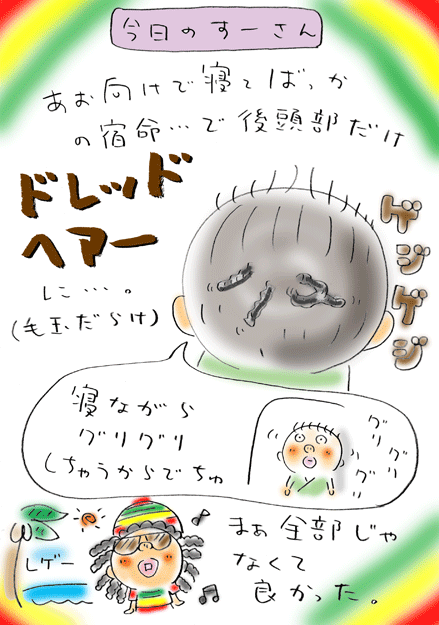 今日のすーさん
あお向けで寝てばっか
の宿命…で後頭部だけ
ドレッド
ヘアー
に…。
(毛玉だらけ)
ゲジゲジ
寝ながら
グリグリ
しちゃうからでちゅ
グリグリ
グリ
レゲー
まぁ全部じゃ
なくて
良かった。